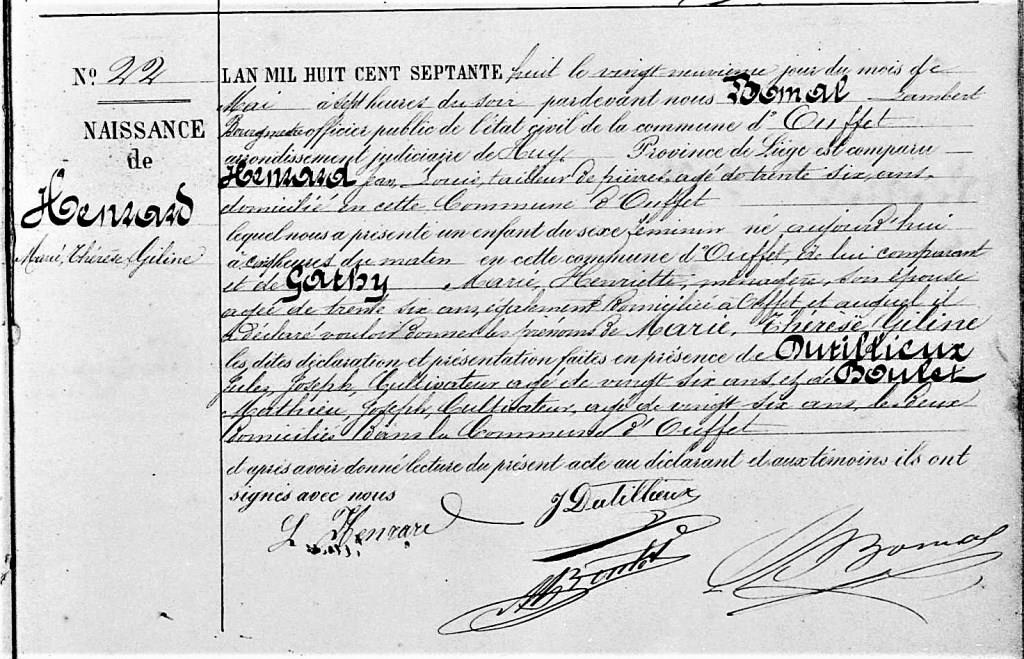 No 22
NAISSANCE
de
Henrard
Marie, Thérèse, Giline
L'AN MIL HUIT CENT SEPTANTE huit le vingt neuvième jour du mois de
Mai à sept heures du soir pardevant nous Bomal Lambert
Bourgmestre officier public de l'état civil de la commune d'Ouffet
arrondissement judiciaire de Huy Province de Liège est comparu
Henrard Jean, Louis, tailleur de pierres, agé de trente six, ans,
domicilié en cette Commune d'Ouffet
lequel nous a présenté un enfant du sexe féminin né aujourd'hui
à cinq heures du matin en cette commune d'Ouffet, de lui comparant
et de Gathy Marie, Henriette, ménagère, son épouse
agée de trente six ans, également domiciliée à Ouffet et auquel il
a déclaré vouloir donner les prénoms de Marie, Thérèse, Giline
les dites déclaration et présentation faites en présence de Dutillieux
Jules, Joseph, Cultivateur agé de vingt six ans, et de Boulet
Mathieu, Joseph, Cultivateur, agé de vingt six ans, les deux
domiciliés dans la Commune d'Ouffet
et après avoir donné lecture du présent acte au déclarant et aux témoins ils ont
signés avec nous
L Henrard
J Dutillieux
Boulet
Bomal